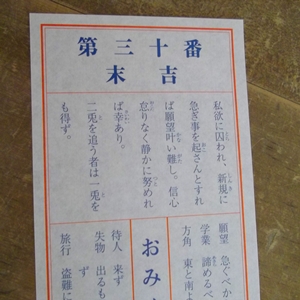 第三十番
末吉
私欲に囚われ、新規に
急ぎ事を起さんとすれ
ば願望叶い難し。信心
怠りなく静かに努めれ
ば幸あり。
二兎を追う者は一兎を
も得ず。
願望 急ぐべか
学業 諦めるべ
方角 東と南よ
おみ
待人 来ず
失物 出るも
ず
旅行 盗難に